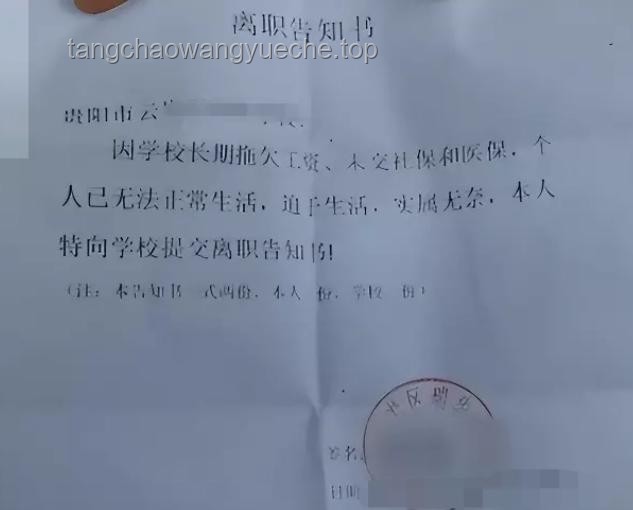 离职告知书
tangchaowangyueche.top
贵阳市云
因学校长期拖欠工资、未交社保和医保，个
人已无法正常生活，迫于生活，实属无奈，本人
特向学校提交离职告知书!
（注：本告知书一式两份，本人一份，学校一份）
区
签名:
日期